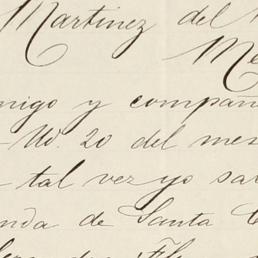 Martinez del
Me
migo y compañ
20 del mes
tal vez yo sa
nda de Santa